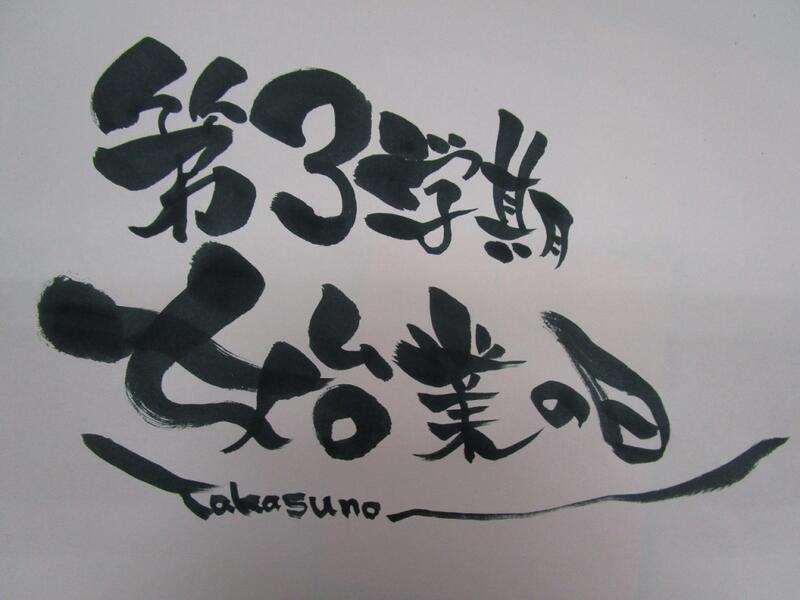 第3学期
始業の日
Takasuno